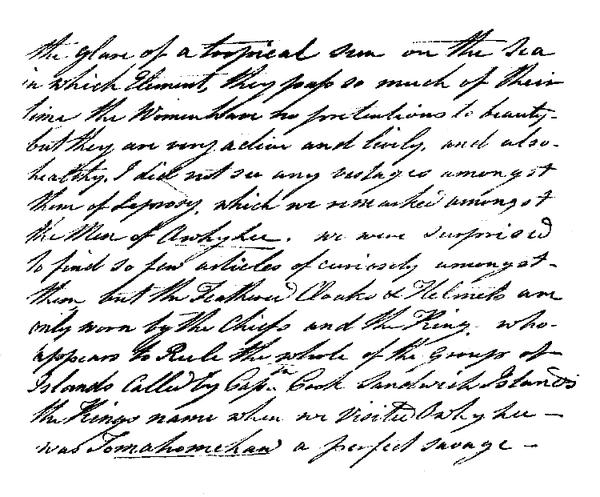 the glare of a tropical sun on the Sea
in which Element, they pass so much of their
time the Women have no pretentions to beauty-
but they are very active and lively, and also-
healthy. I did not see any vestages amongst
them of Leprosey, which we remarked amongst
the Men of Awhyhee. we were surprised
to find so few articles of curiosety amongst-
them but the Feathered Cloaks & Helmets are
only worn by the Chiefs and the King. who-
appears to Rule the whole of the Group of
Islands Called by Capn. Cook Sandwich Islands
the Kings name when we Visited Owhyhee —
was Tomahomehaw a perfect savage —